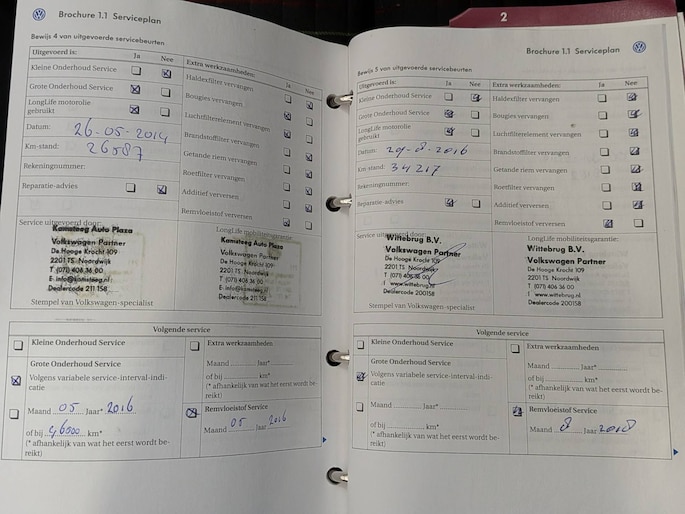 Brochure 1.1 Serviceplan
Bewijs 4 van uitgevoerde servicebeurten
Uitgevoerd is: Ja Nee
Kleine Onderhoud Service
Grote Onderhoud Service
LongLife motorolie
gebruikt
Datum: 26-05-2014
Km-stand: 26587
Rekeningnummer:
Reparatie-advies
Extra werkzaamheden: Ja Nee
Haldexfilter vervangen
Bougies vervangen
Luchtfilterelement vervangen
Brandstoffilter vervangen
Getande riem vervangen
Roetfilter vervangen
Additief verversen
Remvloeistof verversen
Service uitgevoerd door:
Kamsteeg Auto Plaza
Volkswagen Partner
De Hooge Krocht 109
2201 TS Noordwijk
T (071) 406 36 00
E: info@kamsteeg.nl
Dealercode 211 158
LongLife mobiliteitsgarantie
Kamsteeg Auto Plaza
Volkswagen Partner
De Hooge Krocht 109
2201 TS Noordwijk
T (071) 406 36 00
E: info@kamsteeg.nl
Dealercode 211 158
Stempel van Volkswagen-specialist
Volgende service
Kleine Onderhoud Service
Grote Onderhoud Service
Volgens variabele service-interval-indi-
catie
Maand 05 Jaar* 2016
of bij 46000 km*
(* afhankelijk van wat het eerst wordt be-
reikt)
Extra werkzaamheden
Maand Jaar*
of bij km*
(* afhankelijk van wat het eerst wordt be-
reikt)
Remvloeistof Service
Maand 05 Jaar 2016
2
Brochure 1.1 Serviceplan
Bewijs 5 van uitgevoerde servicebeurten
Uitgevoerd is: Ja Nee
Kleine Onderhoud Service
Grote Onderhoud Service
LongLife motorolie
gebruikt
Datum: 29-8-2016
Km-stand: 34217
Rekeningnummer:
Reparatie-advies
Extra werkzaamheden: Ja Nee
Haldexfilter vervangen
Bougies vervangen
Luchtfilterelement vervangen
Brandstoffilter vervangen
Getande riem vervangen
Roetfilter vervangen
Additief verversen
Remvloeistof verversen
Service uitgevoerd door:
Wittebrug B.V.
Volkswagen Partner
De Hooge Krocht 109
2201 TS Noordwijk
T (071) 406 36 00
I www.wittebrug.nl
Dealercode 200158
LongLife mobiliteitsgarantie:
Wittebrug B.V.
Volkswagen Partner
De Hooge Krocht 109
2201 TS Noordwijk
T (071) 406 36 00
I www.wittebrug.nl
Dealercode 200158
Stempel van Volkswagen-specialist
Volgende service
Kleine Onderhoud Service
Grote Onderhoud Service
Volgens variabele service-interval-indi-
catie
Maand Jaar*
of bij km*
(* afhankelijk van wat het eerst wordt be-
reikt)
Extra werkzaamheden
Maand Jaar*
of bij km*
(* afhankelijk van wat het eerst wordt be-
reikt)
Remvloeistof Service
Maand 8 Jaar 2018